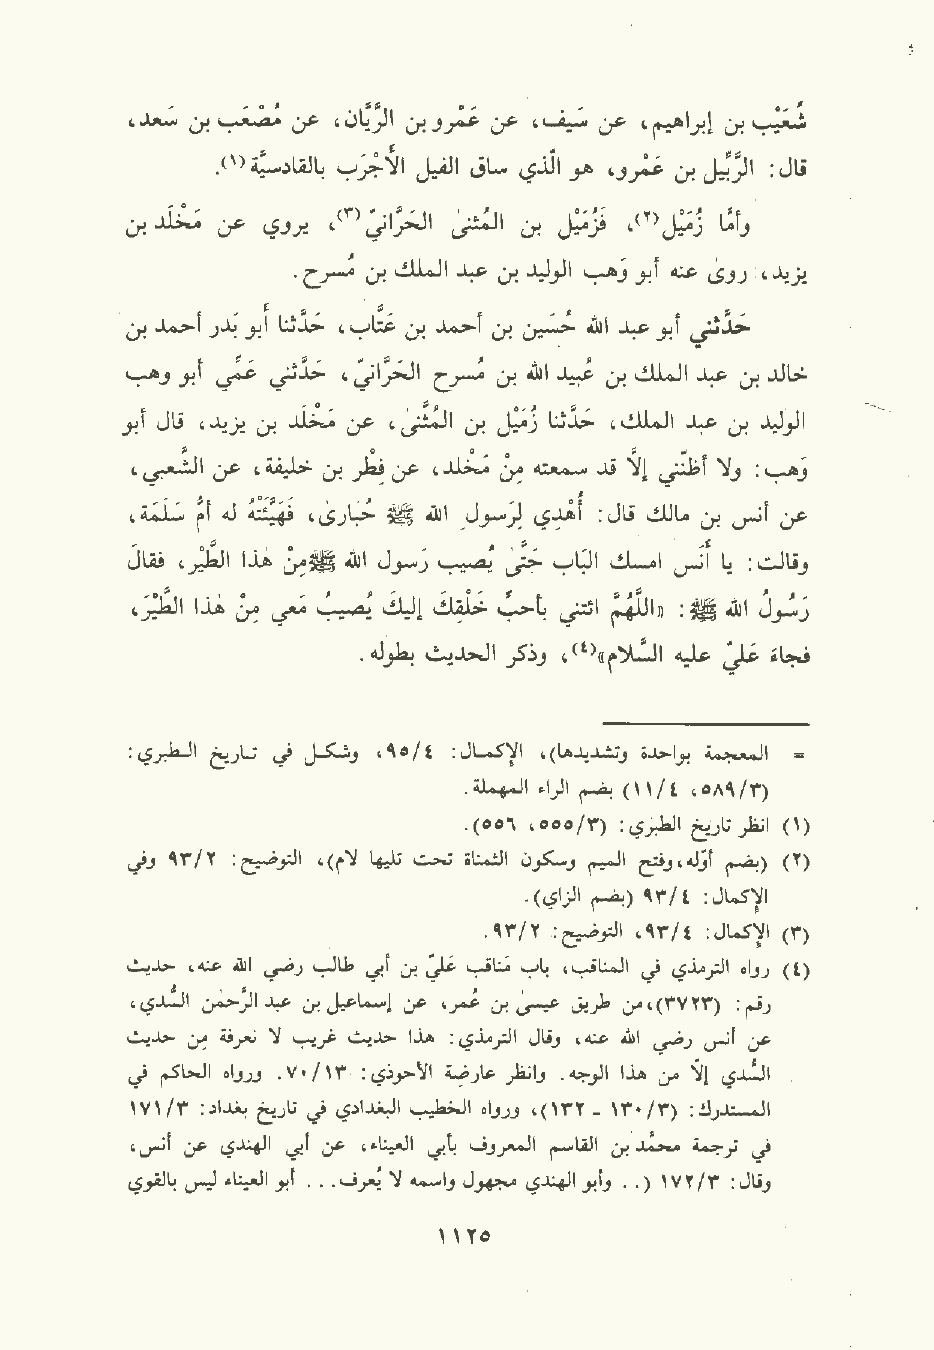 شُعَيْب بن إبراهيم، عن سَيف، عن عَمْرو بن الرَّيَّان، عن مُصْعَب بن سَعد،
قال: الرِّبِّيل بن عَمْرو، هو الَّذي ساق الفيل الأَجْرَب بالقادسيَّة(١).
وأمَّا زُمَيْل(٢)، فَزُمَيْل بن المُثنَّى الحَرَّانيّ(٣)، يروي عن مَخْلَد بن
يزيد، روى عنه أبو وَهب الوليد بن عبد الملك بن مُسرح.
حَدَّثني أبو عبد الله حُسَين بن أحمد بن عَتَّاب، حَدَّثنا أبو بَدر أحمد بن
خالد بن عبد الملك بن عُبيد الله بن مُسرح الحَرَّانيّ، حَدَّثني عَمِّي أبو وهب
الوليد بن عبد الملك، حَدَّثنا زُمَيْل بن المُثَنَّى، عن مَخْلَد بن يزيد، قال أبو
وَهب: ولا أظنّني إلَّا قد سمعته مِنْ مَخْلد، عن فِطْر بن خليفة، عن الشَّعبي،
عن أنس بن مالك قال: أُهْدِي لِرَسولِ الله ﷺ حُبَارى، فَهَيَّئَتْهُ له أُمّ سَلَمَة،
وقالت: يا أَنَس امسك البَاب حَتَّى يُصيب رَسول الله ﷺ مِنْ هَذا الطَّيْر، فقالَ
رَسُولُ الله ﷺ: «اللَّهُمَّ ائتني بأحبَّ خَلْقِكَ إليكَ يُصيبُ معي مِنْ هَذا الطَّيْرِ،
فجاءَ عَليّ عليه السَّلام»(٤)، وذكر الحديث بطوله.
= المعجمة بواحدة وتشديدها)، الإكمال: ٩٥/٤، وشكل في تاريخ الطبري:
(٥٨٩/٣، ١١/٤) بضم الراء المهملة.
(١) انظر تاريخ الطبري: (٥٥٥/٣، ٥٥٦).
(٢) (بضم أوّله، وفتح الميم وسكون المثناة تحت تليها لام)، التوضيح: ٩٣/٢ وفي
الإكمال: ٩٣/٤ (بضم الزاي).
(٣) الإكمال: ٩٣/٤، التوضيح: ٩٣/٢.
(٤) رواه الترمذي في المناقب، باب مَناقب عَليّ بن أبي طالب رضي الله عنه، حديث
رقم: (٣٧٢٣)، من طريق عيسى بن عُمر، عن إسماعيل بن عبد الرَّحمن السُّدي،
عن أنس رضي الله عنه، وقال الترمذي: هذا حديث غريب لا نعرفه من حديث
السُّدي إلَّا من هذا الوجه. وانظر عارضة الأحوذي: ٧٠/١٣. ورواه الحاكم في
المستدرك: (١٣٠/٣ - ١٣٢)، ورواه الخطيب البغدادي في تاريخ بغداد: ١٧١/٣
في ترجمة محمّد بن القاسم المعروف بأبي العيناء، عن أبي الهندي عن أنس،
وقال: ١٧٢/٣ (.. وأبو الهندي مجهول واسمه لا يُعرف... أبو العيناء ليس بالقوي
١١٢٥